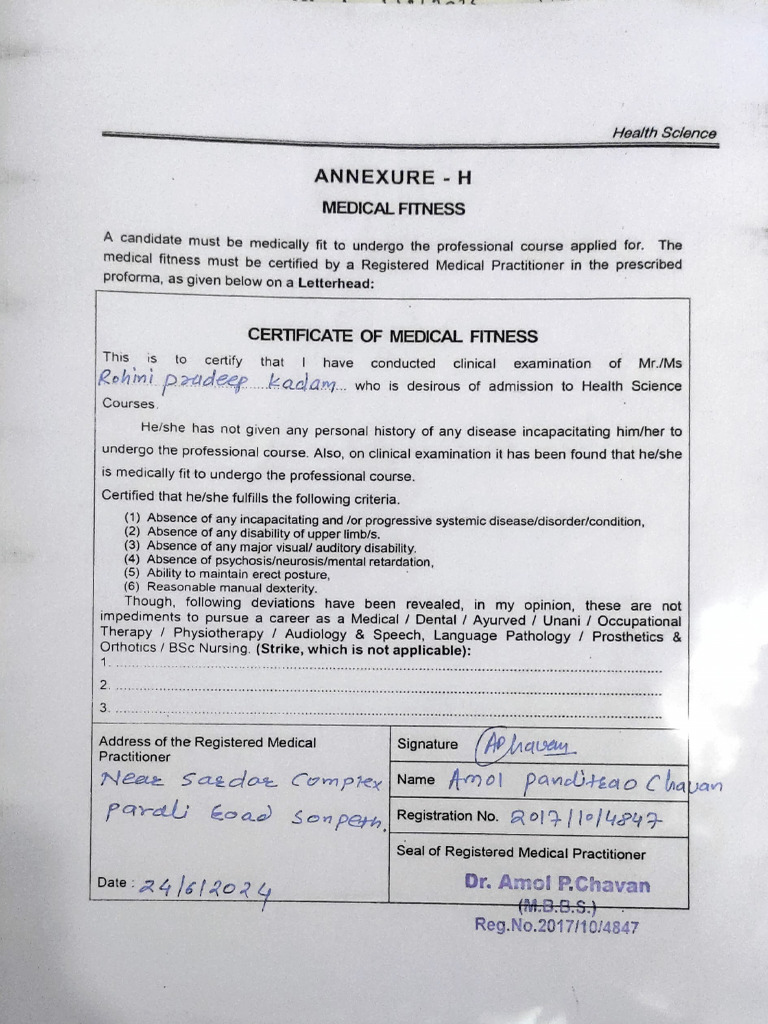 Health Science
ANNEXURE - H
MEDICAL FITNESS
A candidate must be medically fit to undergo the professional course applied for. The
medical fitness must be certified by a Registered Medical Practitioner in the prescribed
proforma, as given below on a Letterhead:
CERTIFICATE OF MEDICAL FITNESS
This is to certify that I have conducted clinical examination of Mr./Ms
Rohini pradeep kadam... who is desirous of admission to Health Science
Courses.
He/she has not given any personal history of any disease incapacitating him/her to
undergo the professional course. Also, on clinical examination it has been found that he/she
is medically fit to undergo the professional course.
Certified that he/she fulfills the following criteria.
(1) Absence of any incapacitating and /or progressive systemic disease/disorder/condition,
(2) Absence of any disability of upper limb/s.
(3) Absence of any major visual/ auditory disability.
(4) Absence of psychosis/neurosis/mental retardation,
(5) Ability to maintain erect posture,
(6) Reasonable manual dexterity.
Though, following deviations have been revealed, in my opinion, these are not
impediments to pursue a career as a Medical / Dental / Ayurved / Unani / Occupational
Therapy / Physiotherapy / Audiology & Speech, Language Pathology / Prosthetics &
Orthotics / BSc Nursing. (Strike, which is not applicable):
1. ....................
2. ....................
3. ....................
Address of the Registered Medical
Practitioner
Near Sardar Complex
parali road sonpeth.
Date : 24/6/2024
Signature APchavan
Name Amol panditrao Chavan
Registration No. 2017/10/4847
Seal of Registered Medical Practitioner
Dr. Amol P.Chavan
(M.B.B.S.)
Reg.No.2017/10/4847